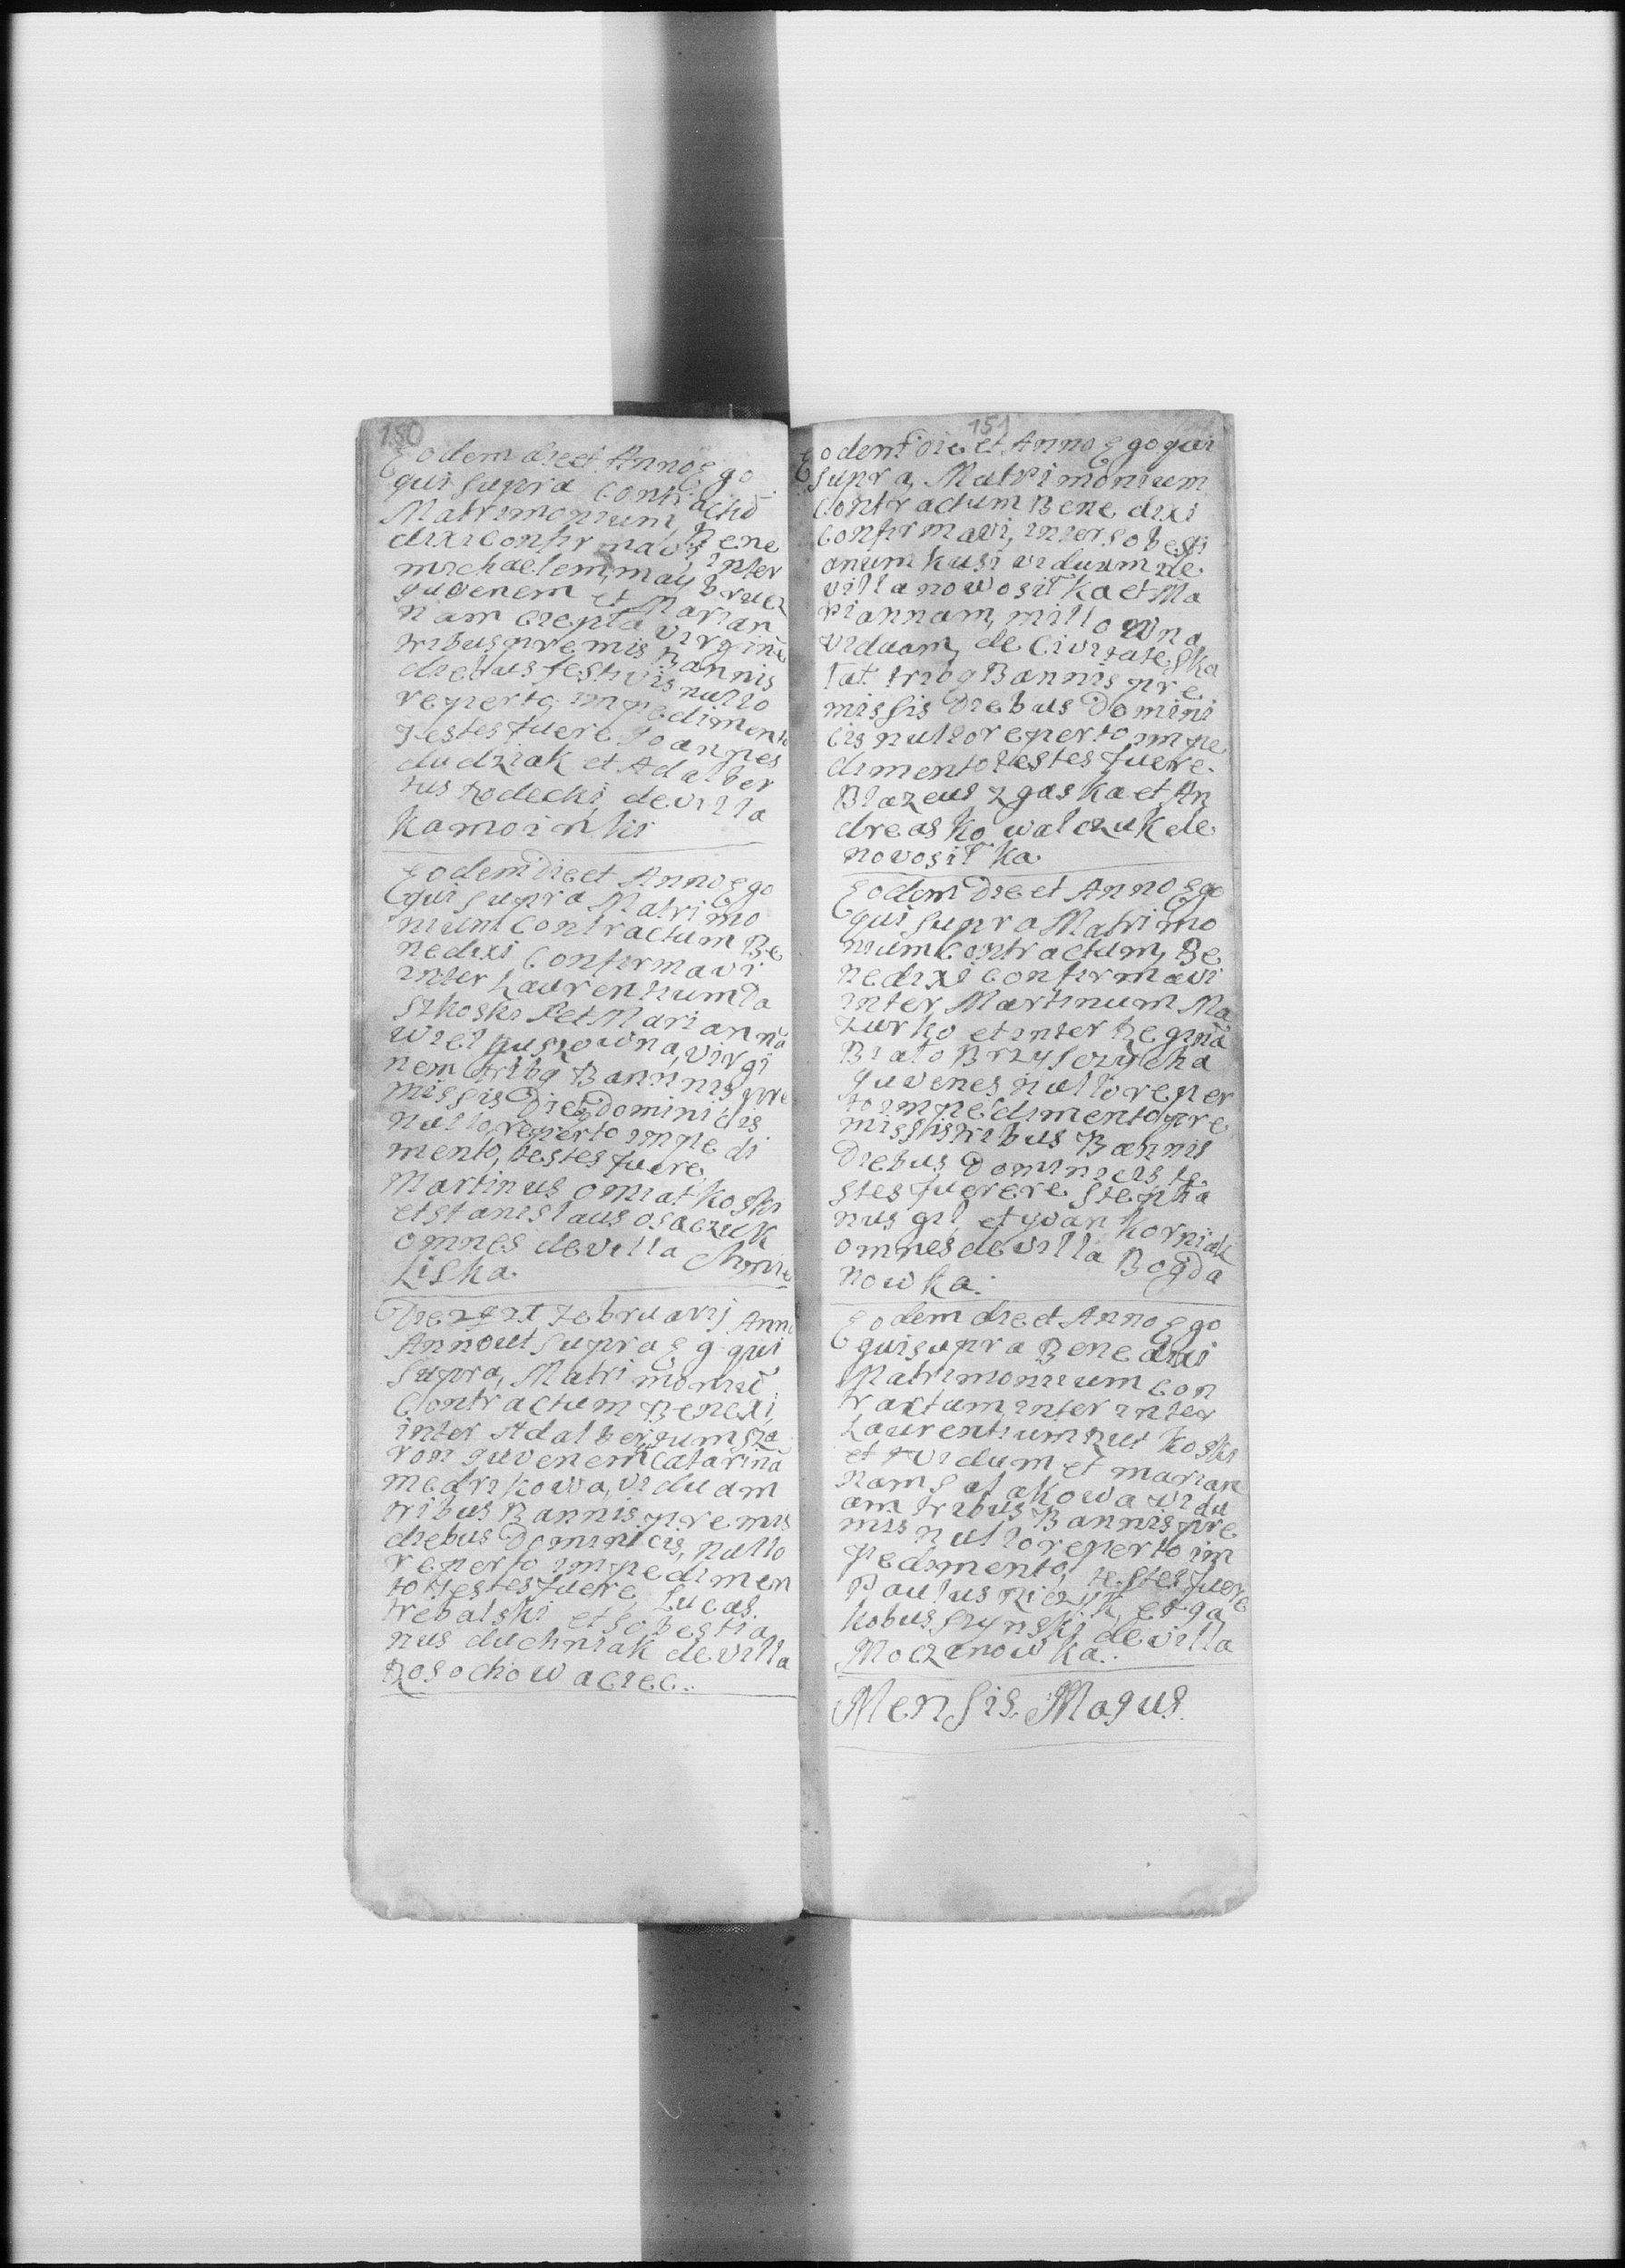 150
Eodem die et Anno Ego
qui supra contractũ
Matrimonium Bene
dixi confirmavi, inter
michaelem, may bruck
guvenem et Marian
nam Ciepła virginẽ
tribus premis Bannis
diebus festivis nullo
reperto impedimento
testes fuere Joannes
dudziak et Adalber
tus rodecki de villa
Kamoinki
Eodem Die et Anno Ego
qui supra Matrimo
nium contractum Be
nedixi Confirmavi
inter Laurentium Da
szkoski et Mariannã
wiel puszowna, virgi
nem tribq Bannnis pre
missis Dieb Dominicis
nullo reperto impedi
mento, testes fuere
Martinus omiatkoski
et stanislaus osaczuk
omnes de villa Chmie
Liska.
Die 21 Februarij Anni
Anno ut supra Eg qui
Supra, Matrimoniũ
Contractum Benexi,
inter Adalbertum Sza
ron guvenem Catarinã
medrikowa, viduam
tribus Bannis premis
diebus Dominicis, nullo
reperto impedimen
to testes fuere, Lucas
trebalski et Sobestia
nus duchniak de villa
Rosochowaciec.
151
Eodem die et Anno Ego qui
supra, Matrimonium
Contractum Bene dixi
Confirmavi, inter Sobesti
anum kusi viduum de
villa nowosiłka et Ma
riannam, millowna
viduam, de Civitate Ska
łat tribq Bannis pre
missis Diebus Domini
cis nullo reperto impe
dimento testes fuere.
Blazeus zgaska et An
dreas kowalczuk de
novosiłka
Eodem Die et Anno Ego
qui supra Matrimo
nium Contractum, Be
nedixi confirmavi
inter Martinum Ma
zurko et inter Reginã
Biało Brzyszczycha
guvenes nullo reper
to impedimento pre
missis tribus Bannis
Diebus Dominicis te
stes fuerere Stepha
nus gil, et yvan Korniak
omnes de villa Bogda
nowka.
Eodem die et Anno Ego
qui supra Benedixi
Matrimonium con
tractum inter inter
Laurentium rutkoski
et viduum et marian
nam Satakowa vidu
am tribus Bannis pre
mis nullo reperto im
pedimento, testes fuere
Paulus Riczyk, et ga
kobus Szynski de villa
Moczanowka.
Mensis Magus.